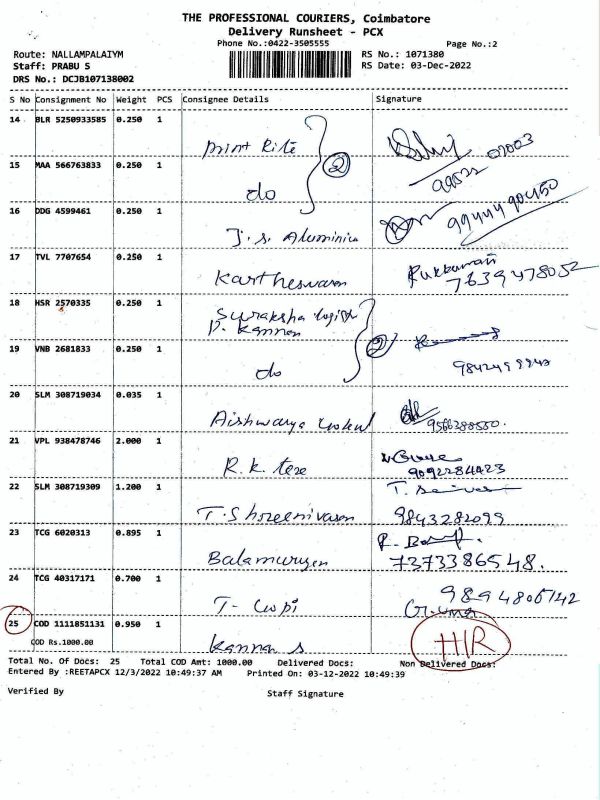 THE PROFESSIONAL COURIERS, Coimbatore
Delivery Runsheet - PCX
Phone No.:0422-3505555
Page No.:2
Route: NALLAMPALAIYM
RS No.: 1071380
Staff: PRABU S
RS Date: 03-Dec-2022
DRS No.: DCJB107138002
S No Consignment No Weight PCS Consignee Details Signature
14 BLR 5250933585 0.250 1
print Rite
15 MAA 566763833 0.250 1
2
do
16 DDG 4599461 0.250 1
99444 90450
J.S. Aluminiu
17 TVL 7707654 0.250 1
Kartheswaran
Rukkumani
7639478052
18 HSR 2570335 0.250 1
Suraksha
P. Kannan
19 VNB 2681833 0.250 1
2
do
20 SLM 308719034 0.035 1
Aishwarya
9566288550.
21 VPL 938478746 2.000 1
R.K. tex
9092284423
22 SLM 308719309 1.200 1
T. Shreenivasan
9843282099
23 TCG 6020313 0.895 1
Balamurugen
7373386548.
24 TCG 40317171 0.700 1
T- Gopi
9894806142
G. Uma
25 COD 1111851131 0.950 1
COD Rs.1000.00
Kannan S.
H/R
Total No. Of Docs: 25 Total COD Amt: 1000.00 Delivered Docs: Non Delivered Docs:
Entered By :REETAPCX 12/3/2022 10:49:37 AM Printed On: 03-12-2022 10:49:39
Verified By
Staff Signature